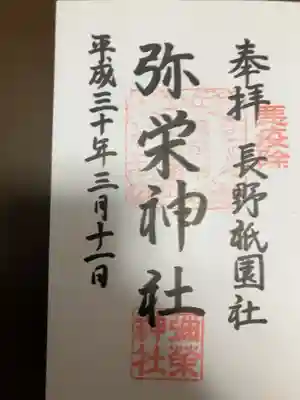 奉拝 長野祇園社
悪疫除
弥栄神社
彌栄神社
平成三十年三月十一日